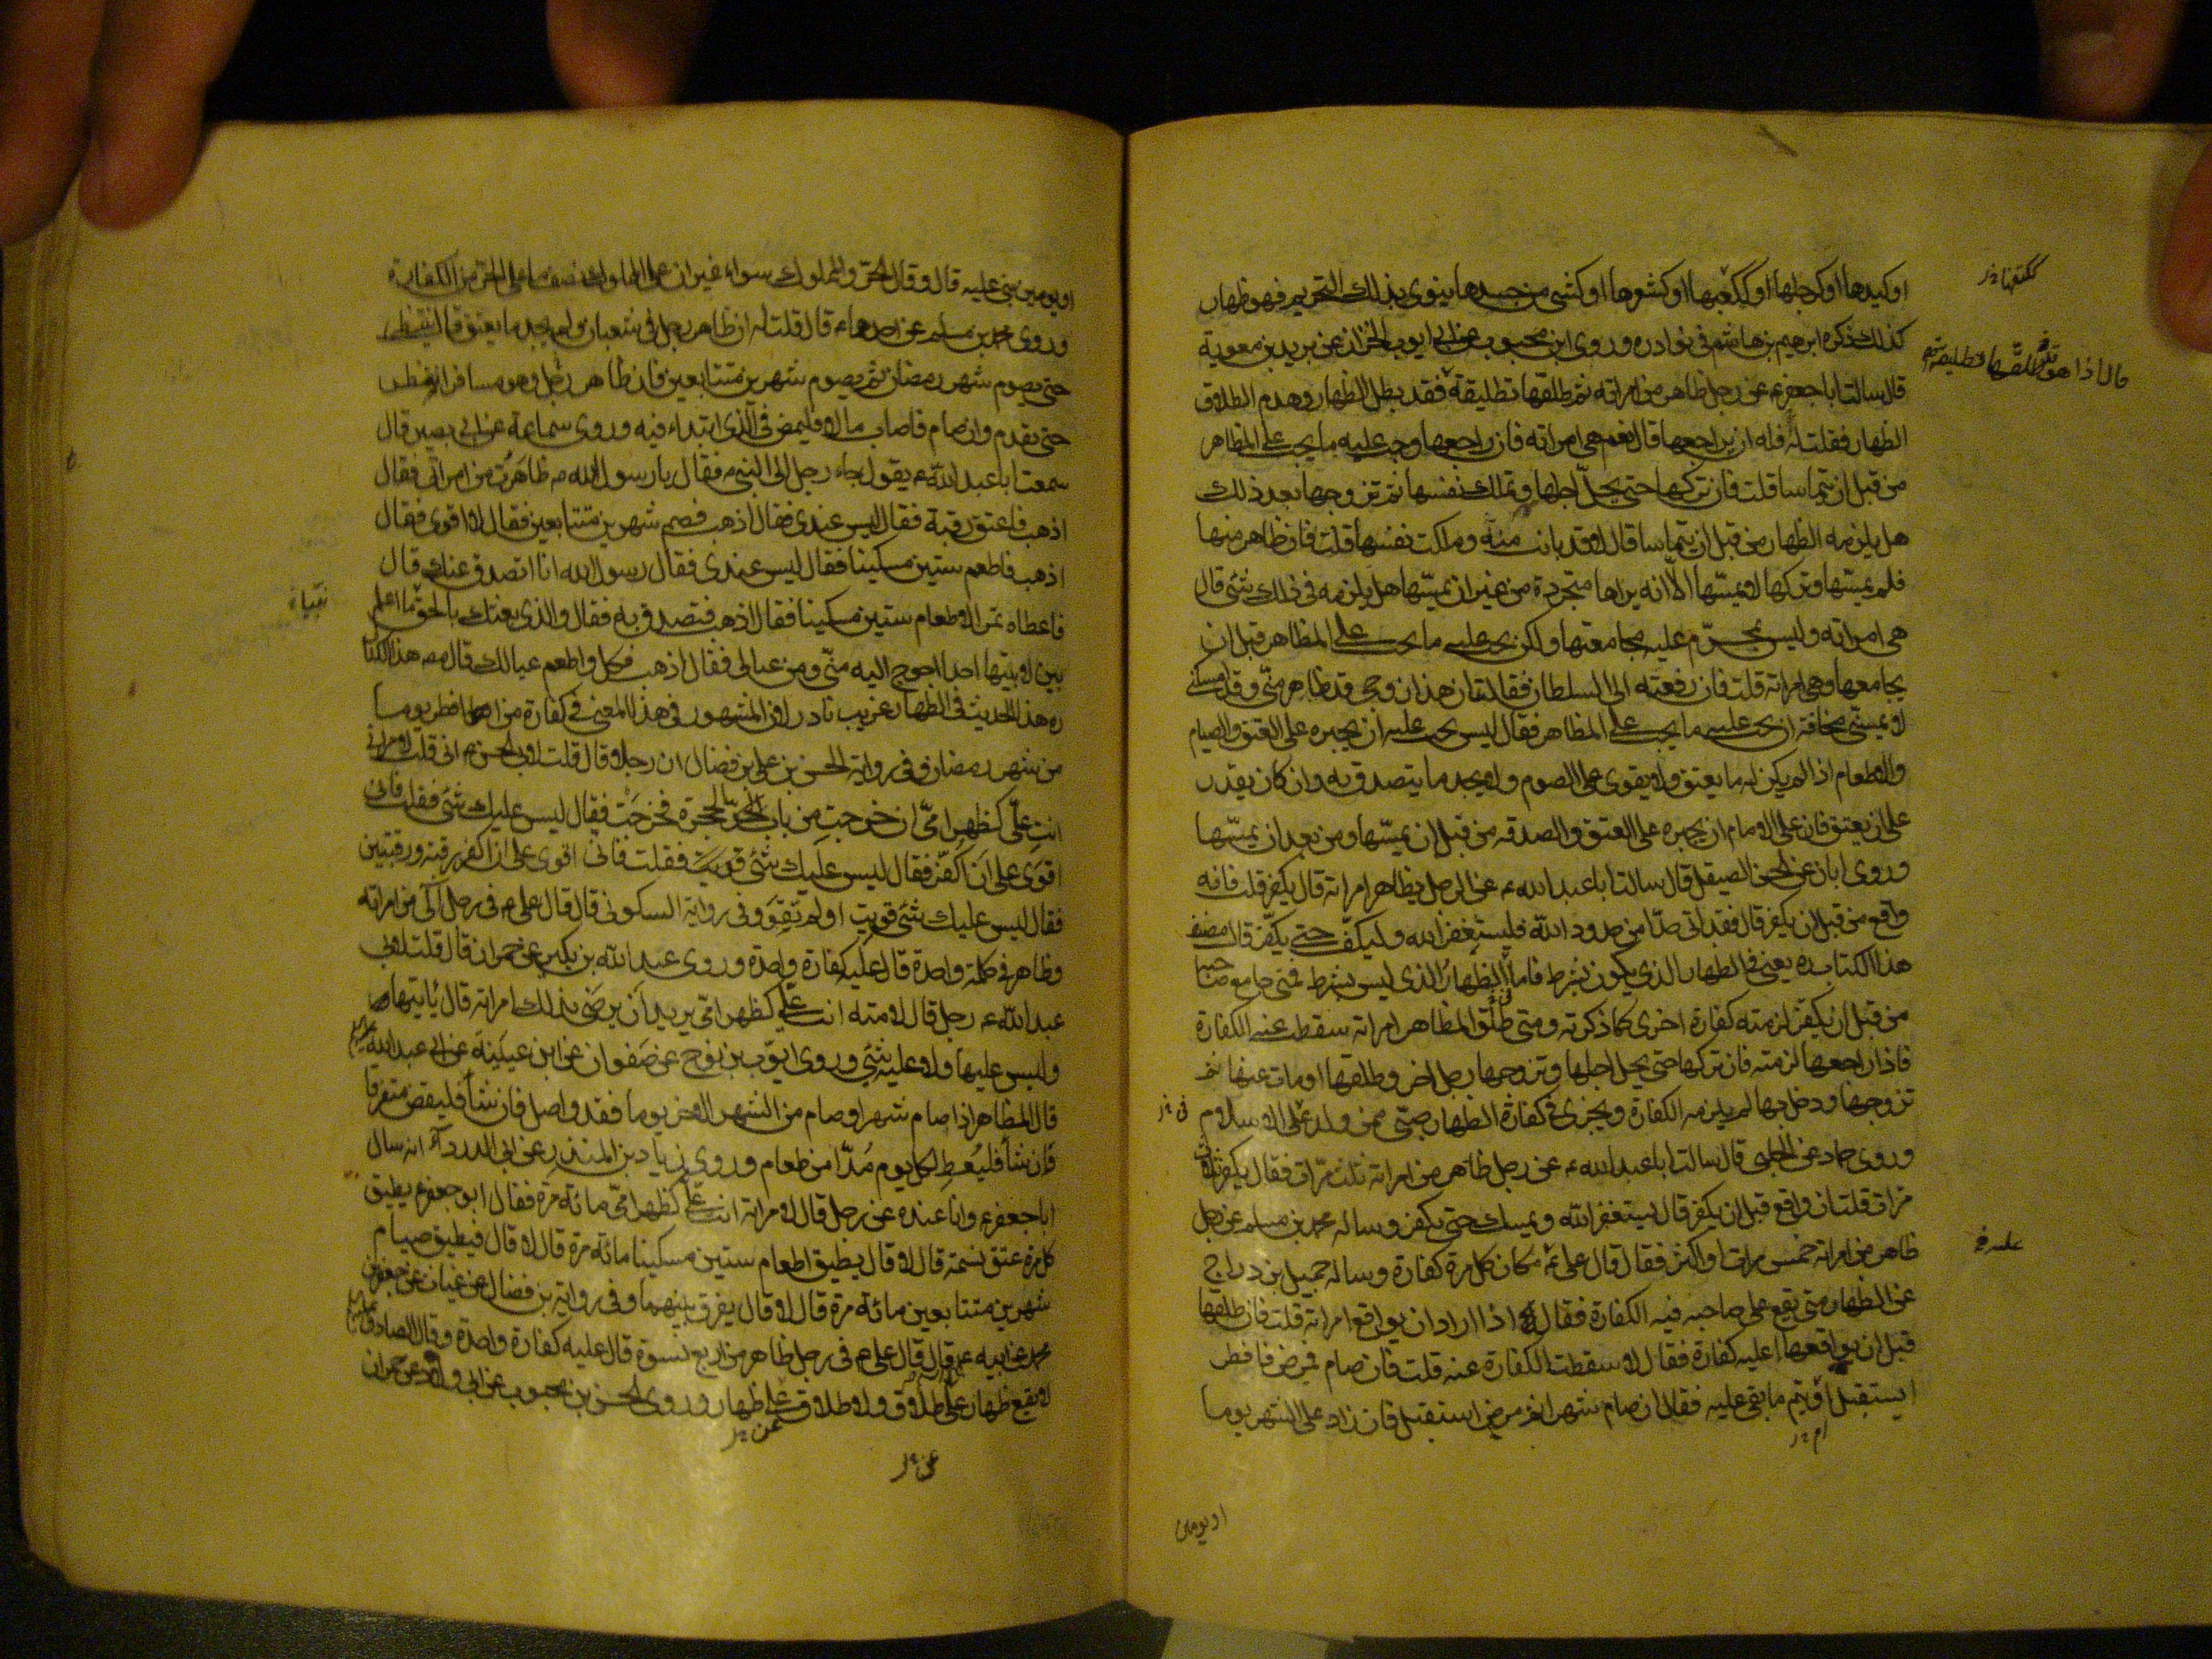 او كيدها او كرجلها او ككعبها او كشعرها او كشئ من جسدها ينوى بذلك التحريم فهو ظهار
كذلك ذكره ابرهيم بن هاشم فى نوادره وروى ابن محبوب عن ابى ايوب الخزاز عن بريد بن معوية
قال سالت ابا جعفر ع عن رجل ظاهر من امراته ثم طلقها تطليقة فقد بطل الظهار وهدم الطلاق
الظهار فقلت له فله ان يراجعها قال نعم هى امراته فان راجعها وجب عليه ما يجب على المظاهر
من قبل ان يتماسا قلت فان تركها حتى يحل اجلها وتملك نفسها ثم تزوجها بعد ذلك
هل يلزمه الظهار من قبل ان يتماسا قال لا قد بانت منه وملكت نفسها قلت فان ظاهر منها
فلم يمسها وتركها لا يمسها الا انه يراها متجردة من غير ان يمسها هل يلزمه فى ذلك شئ قال
هى امراته وليس بمحرم عليه مجامعتها ولكن يجب عليه ما يجب على المظاهر قبل ان
يجامعها وهى امراته قلت فان رفعته الى السلطان فقالت ان هذا زوجى قد ظاهر منى وقد امسكنى
لا يمسنى مخافة ان يجب عليه ما يجب على المظاهر فقال ليس يجب عليه ان يجبره على العتق والصيام
والاطعام اذا لم يكن له ما يعتق ولا يقوى على الصوم ولا يجد ما يتصدق به وان كان يقدر
على ان يعتق فان على الامام ان يجبره على العتق والصدقه من قبل ان يمسها ومن بعد ان يمسها
وروى ابان عن الحسن الصيقل قال سالت ابا عبد الله ع عن الرجل يظاهر امراته قال يكفر قلت فانه
واقع من قبل ان يكفر قال فقد اتى حدا من حدود الله فليستغفر الله وليكف حتى يكفر قال مصنف
هذا الكتاب ره يعنى فى الظهار الذى يكون بشرط فاما الظهار الذى ليس بشرط فمتى جامع صاحبه
من قبل ان يكفر لزمته كفارة اخرى كما ذكرته ومتى طلق المظاهر امراته سقطت عنه الكفارة
فاذا راجعها لزمته فان تركها حتى يحل اجلها وتزوجها رجل اخر وطلقها او مات عنها ثم
تزوجها ودخل بها لم يلزمه الكفارة ويجزى فى كفارة الظهار صبى ممن ولد على الاسلام
وروى حماد عن الحلبى قال سالت ابا عبد الله ع عن رجل ظاهر من امراته ثلث مرات فقال يكفر ثلاث
مرات قلت فان واقع قبل ان يكفر قال يستغفر الله ويمسك حتى يكفر وساله محمد بن مسلم عن رجل
ظاهر من امراته خمس مرات او اكثر فقال قال على ع مكان كل مرة كفارة وساله جميل بن دراج
عن الظهار متى يقع على صاحبه فيه الكفارة فقال اذا اراد ان يواقع امراته قلت فان طلقها
قبل ان يواقعها اعليه كفارة فقال لا سقطت الكفارة عنه قلت فان صام فمرض فافطر
ايستقبل او يتم ما بقى عليه فقال ان صام شهرا ثم مرض استقبل فان زاد على الشهر يوما
او يومين
او يومين بنى عليه قال وقال الحر والمملوك سواء غير ان على المملوك نصف ما على الحر من الكفارة
وروى محمد بن مسلم عن احدهما ع قال قلت له ان ظاهر رجل فى شعبان ولم يجد ما يعتق قال ينتظر
حتى يصوم شهر رمضان ثم يصوم شهرين متتابعين فان ظاهر رجل وهو مسافر انتظر
حتى يقدم وان صام فاصاب مالا فليمض فى الذى ابتداء فيه وروى سماعة عن ابى بصير قال
سمعت ابا عبد الله ع يقول جاء رجل الى النبى ص فقال يا رسول الله ص ظاهرت من امراتى فقال
اذهب فاعتق رقبة فقال ليس عندى فقال اذهب فصم شهرين متتابعين فقال لا اقوى فقال
اذهب فاطعم ستين مسكينا فقال ليس عندى فقال رسول الله انا اتصدق عنك قال
فاعطاه تمرا لاطعام ستين مسكينا فقال اذهب فتصدق به فقال والذى بعثك بالحق ما اعلم
بين لابتيها احدا احوج اليه منى ومن عيالى فقال اذهب فكل واطعم عيالك قال مص هذا الكتاب
ره هذا الحديث فى الظهار غريب نادر لان المشهور فى هذا المعنى فى كفارة من افطر يوما
من شهر رمضان وفى رواية الحسن بن على بن فضال ان رجلا قال قلت لابى الحسن ع انى قلت لامراتى
انت على كظهر امى ان خرجت من باب الحجرة فخرجت فقال ليس عليك شئ فقلت فانى
اقوى على ان اكفر فقال ليس عليك شئ قويت فقلت فانى اقوى على ان اكفر رقبة ورقبتين
فقال ليس عليك شئ قويت او لم تقو وفى رواية السكونى قال قال على ع فى رجل آلى من امراته
وظاهر فى كلمة واحدة قال عليه كفارة واحدة وروى عبد الله بن بكير عن حمران قال قلت لابى
عبد الله ع رجل قال لامته انت على كظهر امى يريد ان يرضى بذلك امراته قال ياتيها
وليس عليها ولا عليه شئ وروى ايوب بن نوح عن صفوان عن ابن عيينة عن ابى عبد الله
قال المظاهر اذا صام شهرا وصام من الشهر الاخر يوما فقد واصل فان شاء فليقض متفرقا
فان شاء فليعط لكل يوم مدا من طعام وروى زياد بن المنذر عن ابى الدرداء انه سال
ابا جعفر ع وانا عنده عن رجل قال لامراته انت على كظهر امى مائة مرة فقال ابو جعفر ع يطيق
كل مرة عتق نسمة قال لا قال يطيق اطعام ستين مسكينا مائة مرة قال لا قال فيطيق صيام
شهرين متتابعين مائة مرة قال لا قال يفرق بينهما وفى رواية بن فضال عن غياث عن جعفر بن
محمد عن ابيه ع قال قال على ع فى رجل ظاهر من اربع نسوة قال عليه كفارة واحدة وقال الصادق
لا يقع ظهار على طلاق ولا طلاق على ظهار وروى الحسن بن محبوب عن ابى ولاد عن حمران